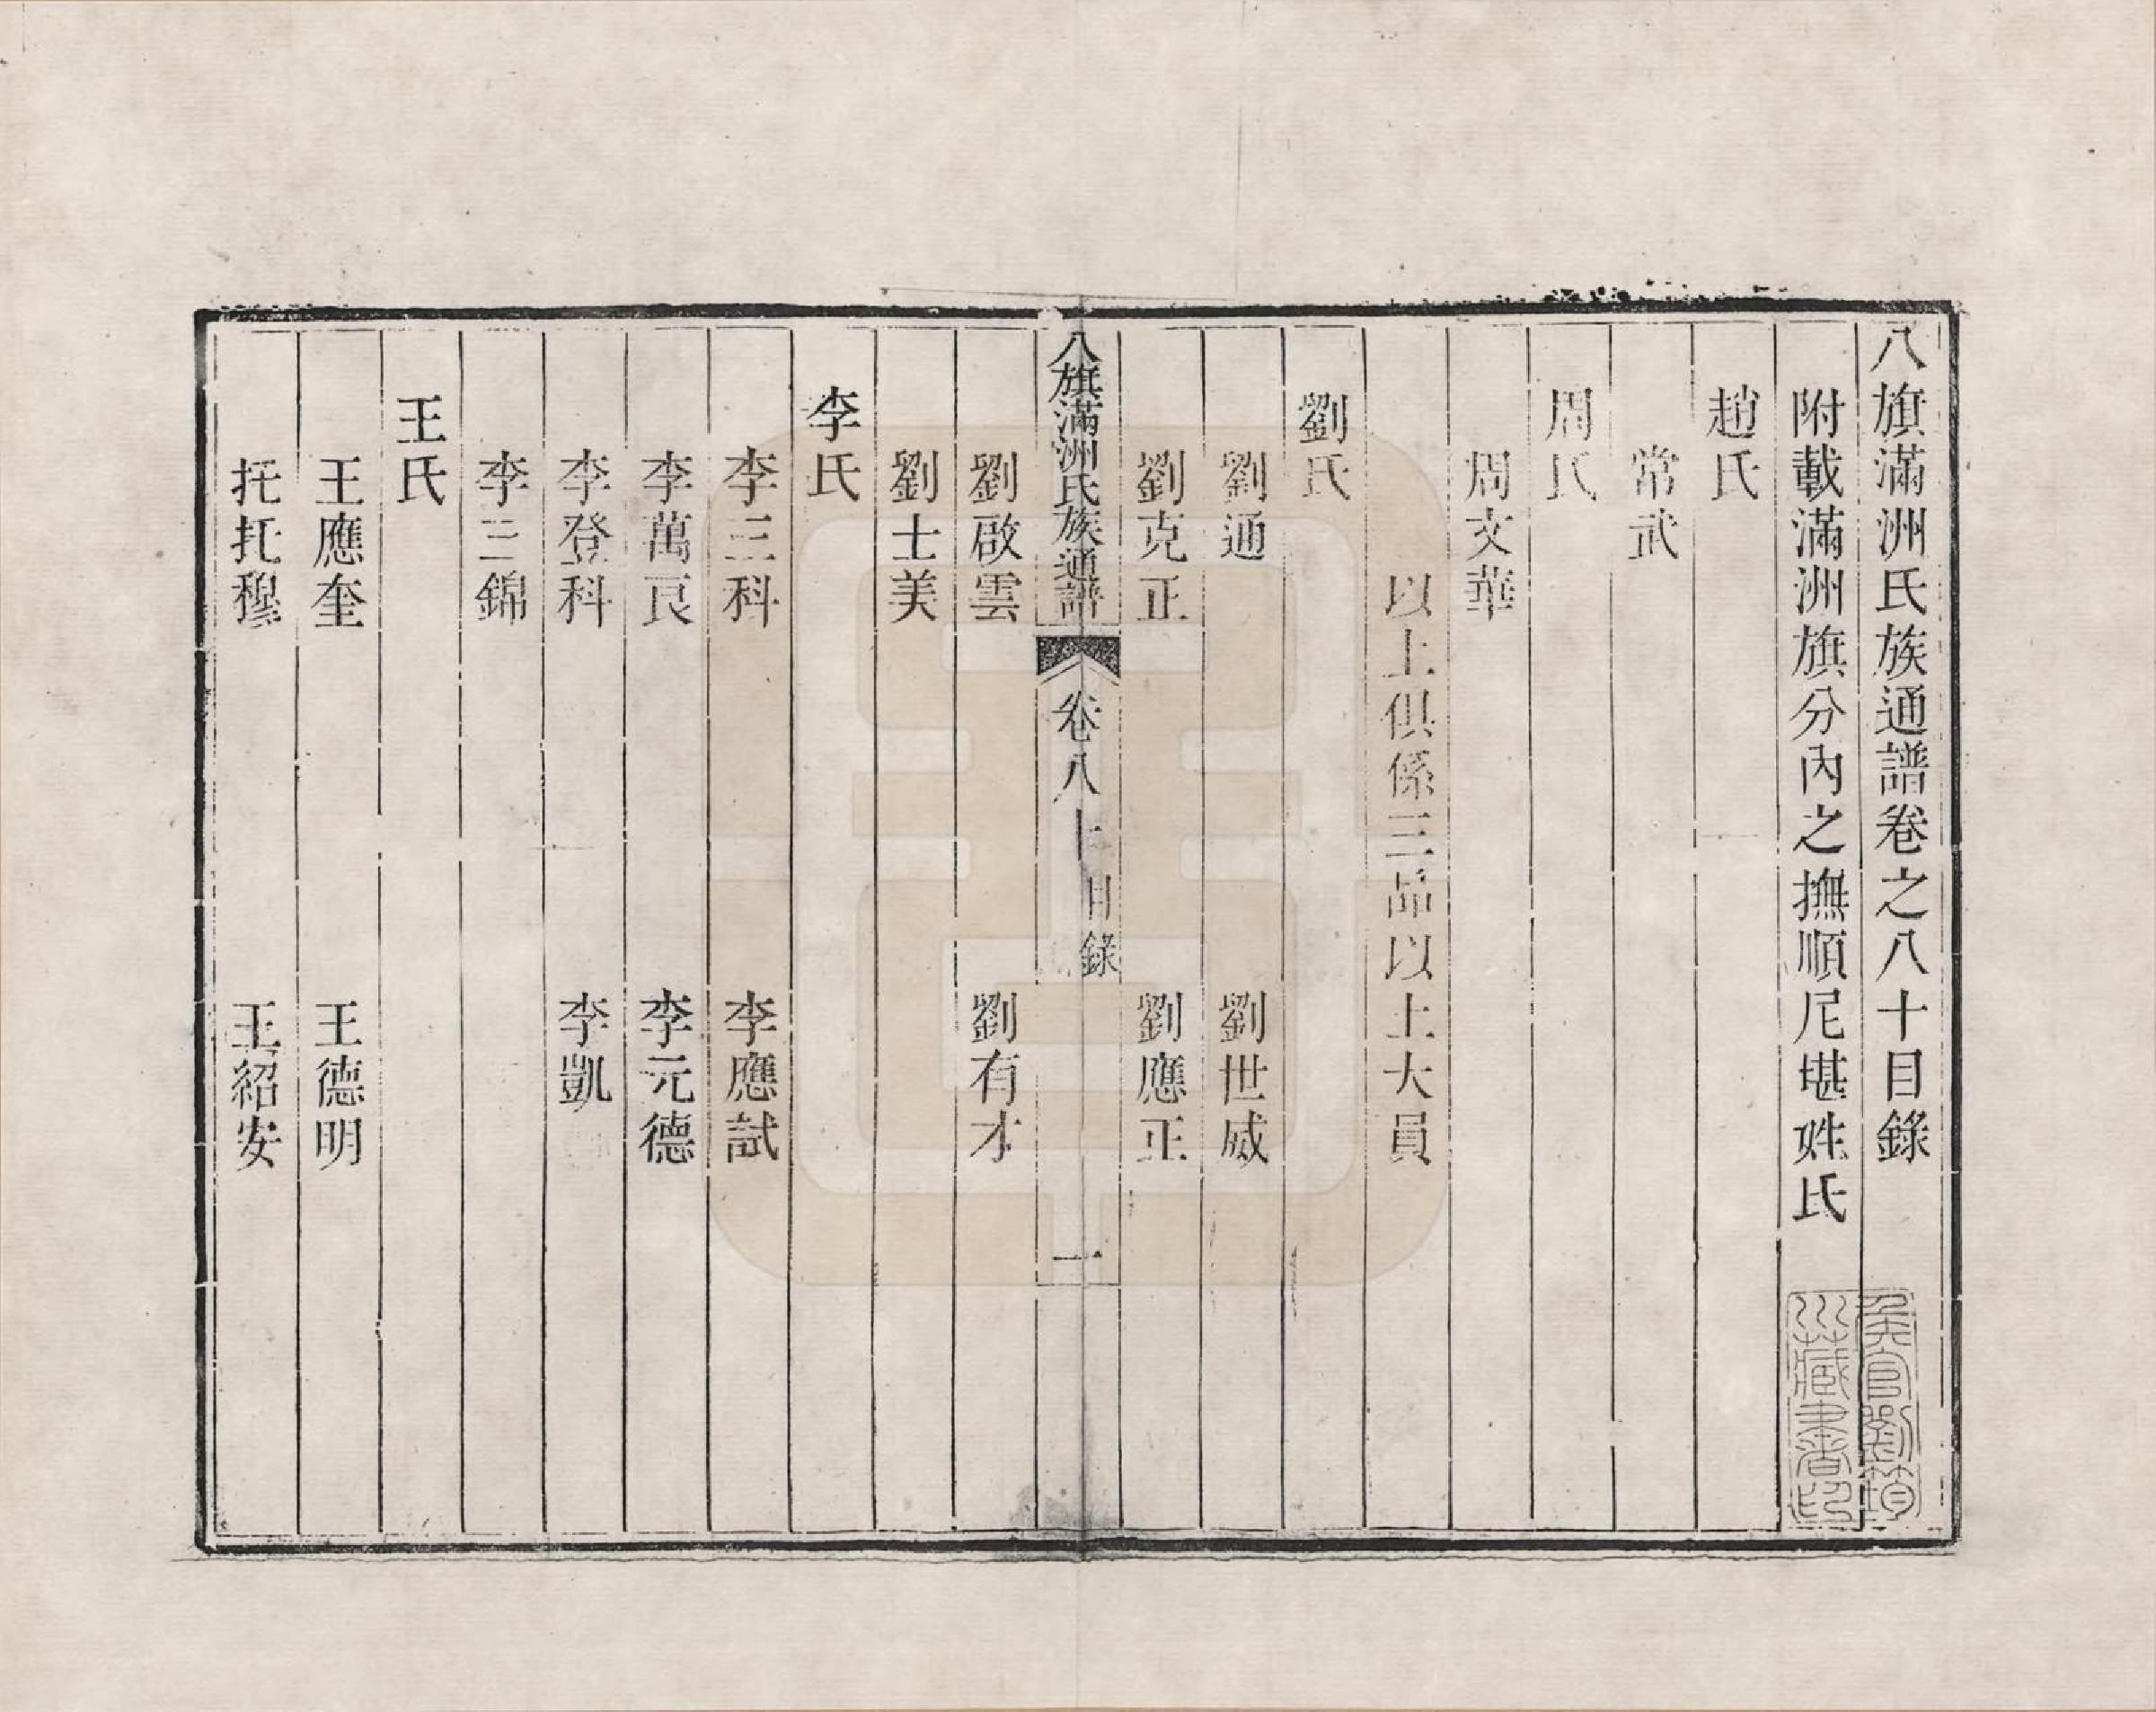 八旗滿洲氏族通譜卷之八十目錄
附載滿洲旗分內之撫順尼堪姓氏
趙氏
常武
周氏
周文華
以上俱係三品以上大員
劉氏
劉通 劉世威
劉克正 劉應正
八旗滿洲氏族通譜 卷八十 目錄 一
劉啟雲 劉有才
劉士美
李氏
李三科 李應試
李萬良 李元德
李登科 李凱
李三錦
王氏
王應奎 王德明
托托穆 王紹安
侯官劉筠
川藏書印